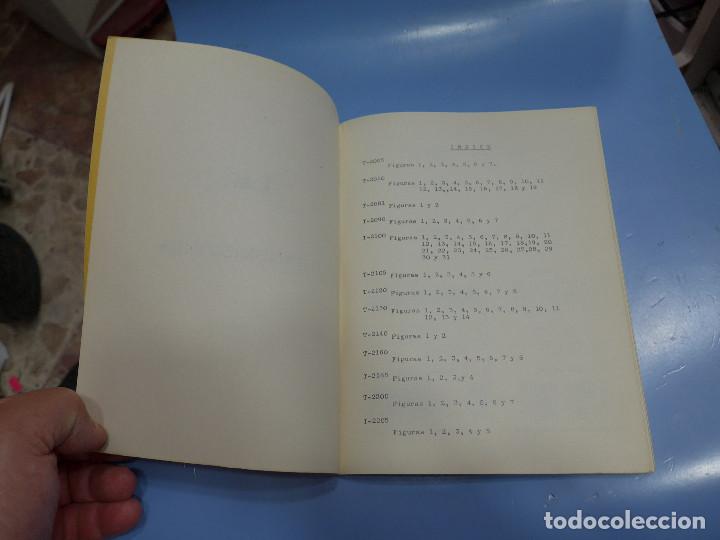 INDICE
T-2065 Figuras 1, 2, 3, 4, 5, 6 y 7.
Figuras 1, 2, 3, 4, 5, 6, 7, 8, 9, 10, 11
12, 13,,14, 15, 16, 17, 18 y 19
T-2081 Figuras 1 y 2
T-2090 Figuras 1, 2, 3, 4, 5, 6 y 7
T-2100 Figuras 1, 2, 3, 4, 5, 6, 7, 8, 9, 10, 11
12, 13, 14, 15, 16, 17, 18,19, 20
21, 22, 23, 24, 25, 26, 27,28, 29
30 y 31
T-2105 Figuras 1, 2, 3, 4, 5 y 6
T-2120 Figuras 1, 2, 3, 4, 5, 6, 7 y 8
T-2130 Figuras 1, 2, 3, 4, 5, 6, 7, 8, 9, 10, 11
12, 13 y 14
T-2140 Figuras 1 y 2
T-2160 Figuras 1, 2, 3, 4, 5, 6, 7 y 8
T-2165 Figuras 1, 2, 3 y 4
T-2200 Figuras 1, 2, 3, 4, 5, 6 y 7
T-2205
Figuras 1, 2, 3, 4 y 5
todocoleccion
todocoleccion.net